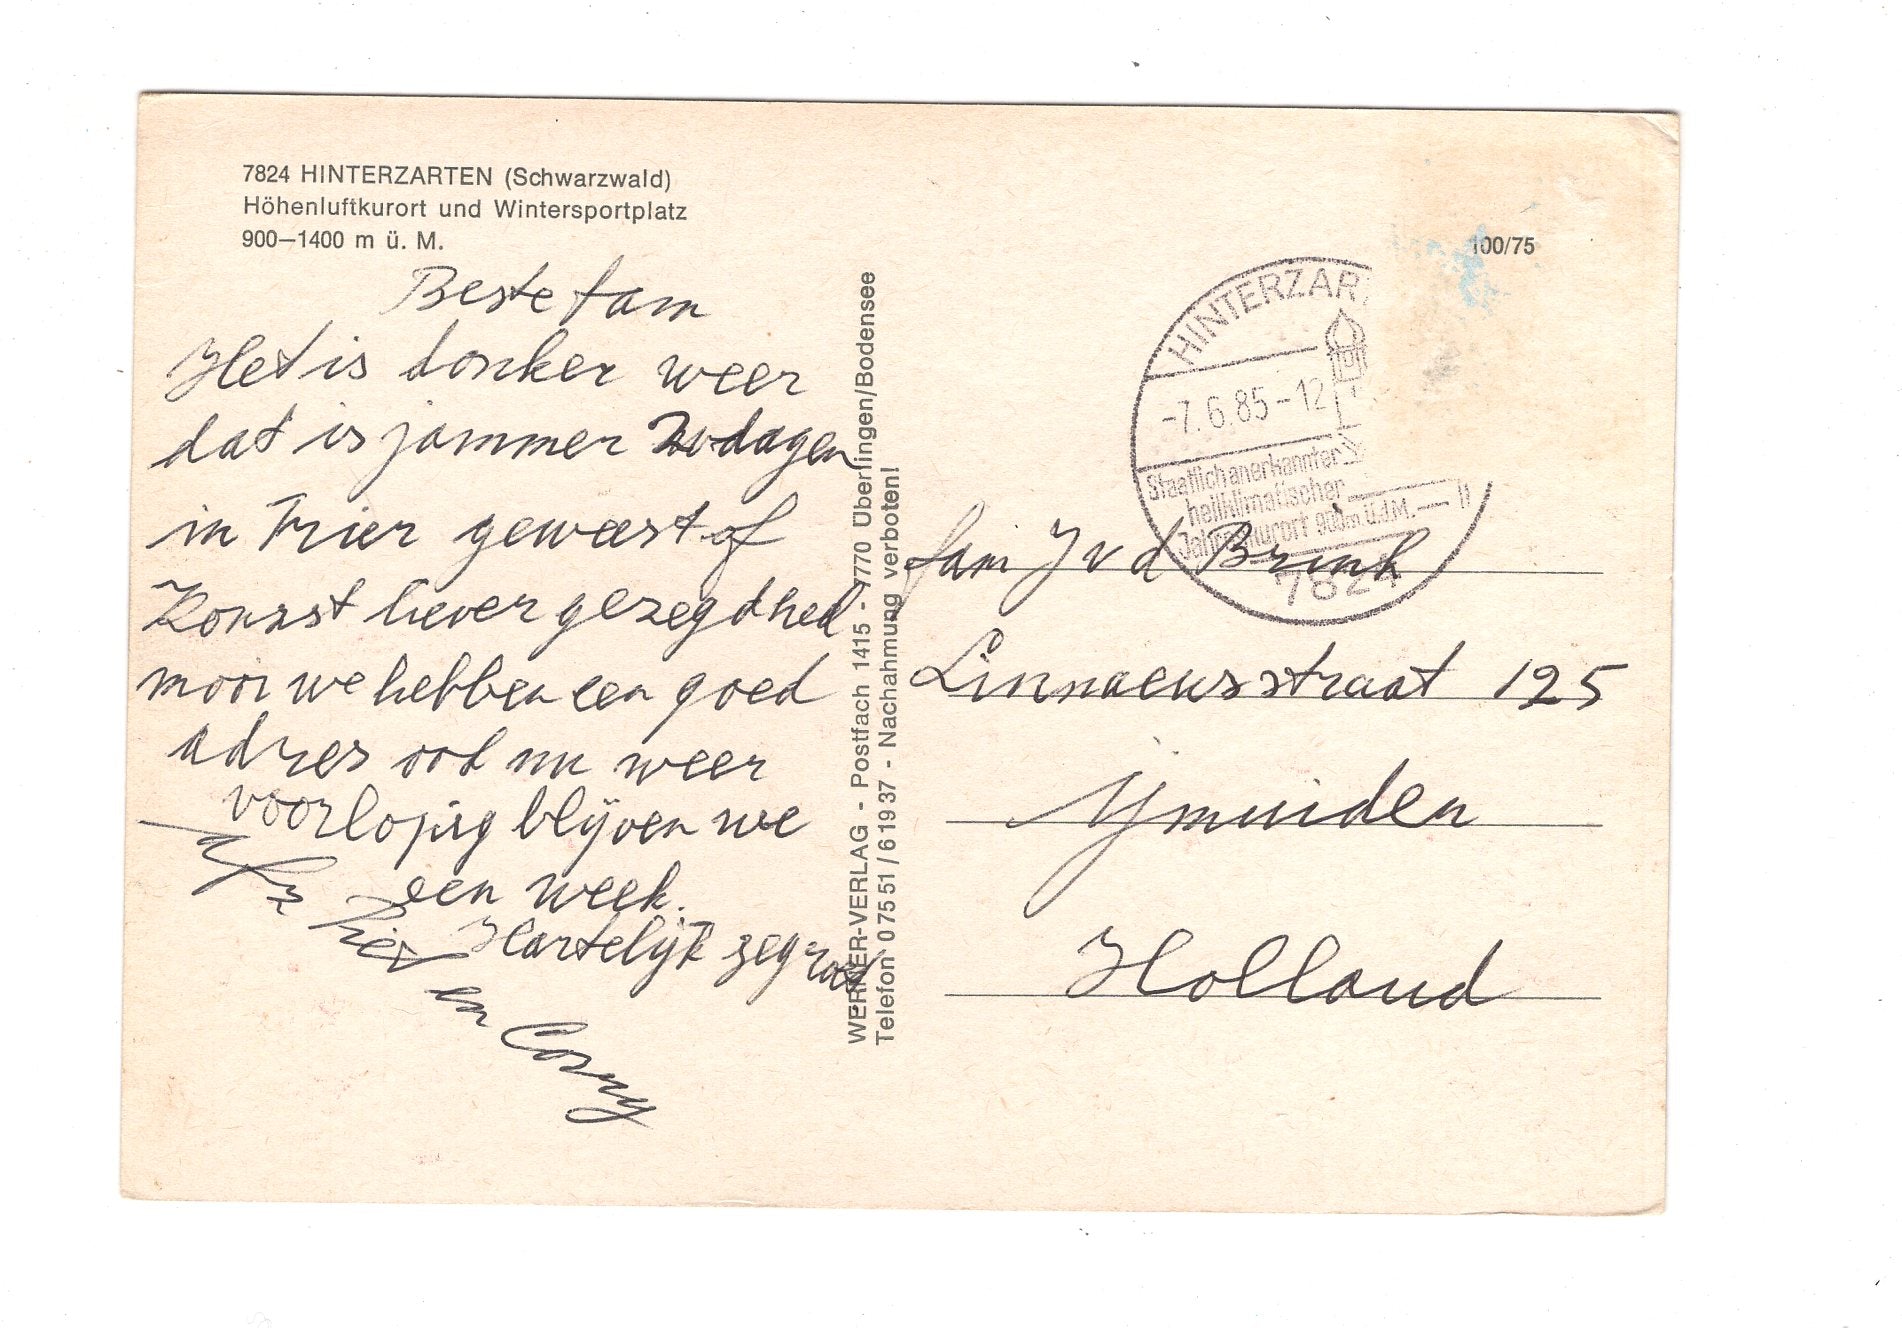 7824 HINTERZARTEN (Schwarzwald)
Höhenluftkurort und Wintersportplatz
900—1400 m ü. M.
Beste fam
Het is donker weer
dat is jammer dagen
in Trier geweest of
Konsst liever gezegd heel
mooi we hebben een goed
adres ook nu weer
voorlopig blijven we
een week.
Hartelijk gegroet
afz
en Corry
WERNER-VERLAG - Postfach 1415 - 7770 Überlingen/Bodensee
Telefon 0 75 51 / 6 19 37 - Nachahmung verboten!
100/75
HINTERZAR
-7.6.85-12
Staatlich anerkannter
heilklimatischer
Jahreskurort 900m ü.d.M.
7824
fam J v d Brink
Linnaeusstraat 125
Ijmuiden
Holland